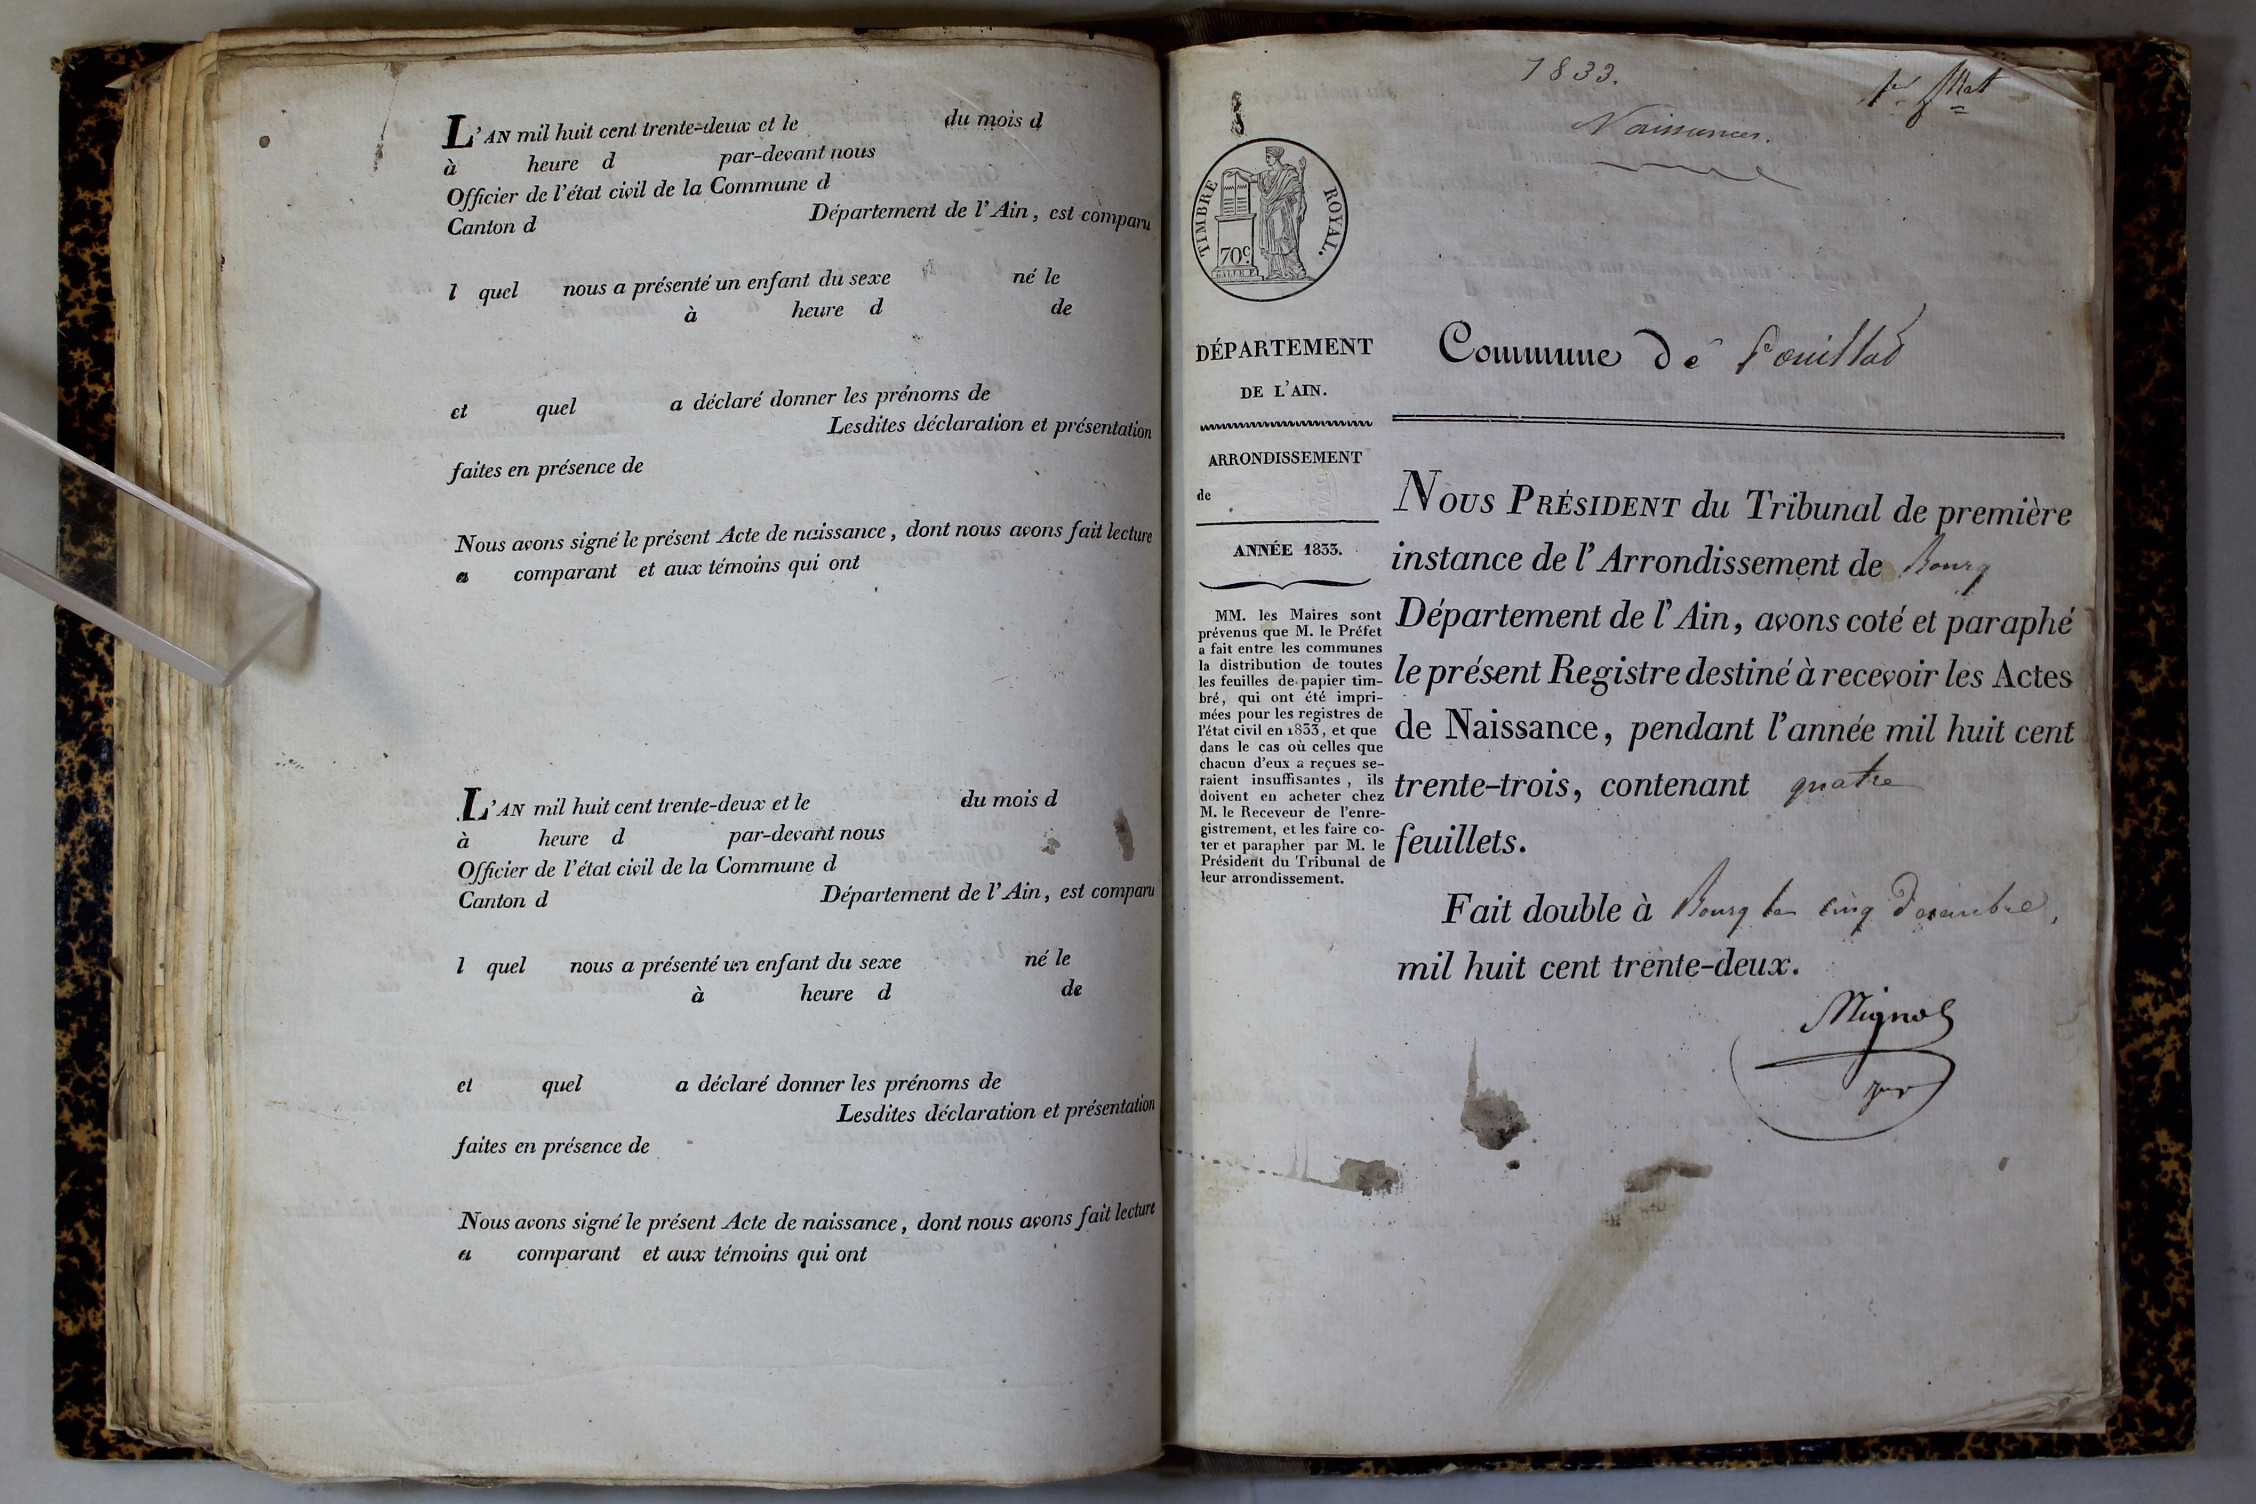 L'AN mil huit cent trente-deux et le du mois d
à heure d par-devant nous
Officier de l'état civil de la Commune d
Canton d Département de l'Ain, est comparu
l quel nous a présenté un enfant du sexe né le
à heure d de
et quel a déclaré donner les prénoms de
Lesdites déclaration et présentation
faites en présence de
Nous avons signé le présent Acte de naissance, dont nous avons fait lecture
a comparant et aux témoins qui ont
L'AN mil huit cent trente-deux et le du mois d
à heure d par-devant nous
Officier de l'état civil de la Commune d
Canton d Département de l'Ain, est comparu
l quel nous a présenté un enfant du sexe né le
à heure d de
et quel a déclaré donner les prénoms de
Lesdites déclaration et présentation
faites en présence de
Nous avons signé le présent Acte de naissance, dont nous avons fait lecture
a comparant et aux témoins qui ont
1833.
Naissances.
TIMBRE ROYAL.
70c.
DÉPARTEMENT
DE L'AIN.
ARRONDISSEMENT
de
ANNÉE 1833.
MM. les Maires sont
prévenus que M. le Préfet
a fait entre les communes
la distribution de toutes
les feuilles de papier tim-
bré, qui ont été impri-
mées pour les registres de
l'état civil en 1833, et que
dans le cas où celles que
chacun d'eux a reçues se-
raient insuffisantes, ils
doivent en acheter chez
M. le Receveur de l'enre-
gistrement, et les faire co-
ter et parapher par M. le
Président du Tribunal de
leur arrondissement.
Commune de
NOUS PRÉSIDENT du Tribunal de première
instance de l'Arrondissement de Bourg
Département de l'Ain, avons coté et paraphé
le présent Registre destiné à recevoir les Actes
de Naissance, pendant l'année mil huit cent
trente-trois, contenant quatre
feuillets.
Fait double à Bourg le cinq Décembre,
mil huit cent trente-deux.